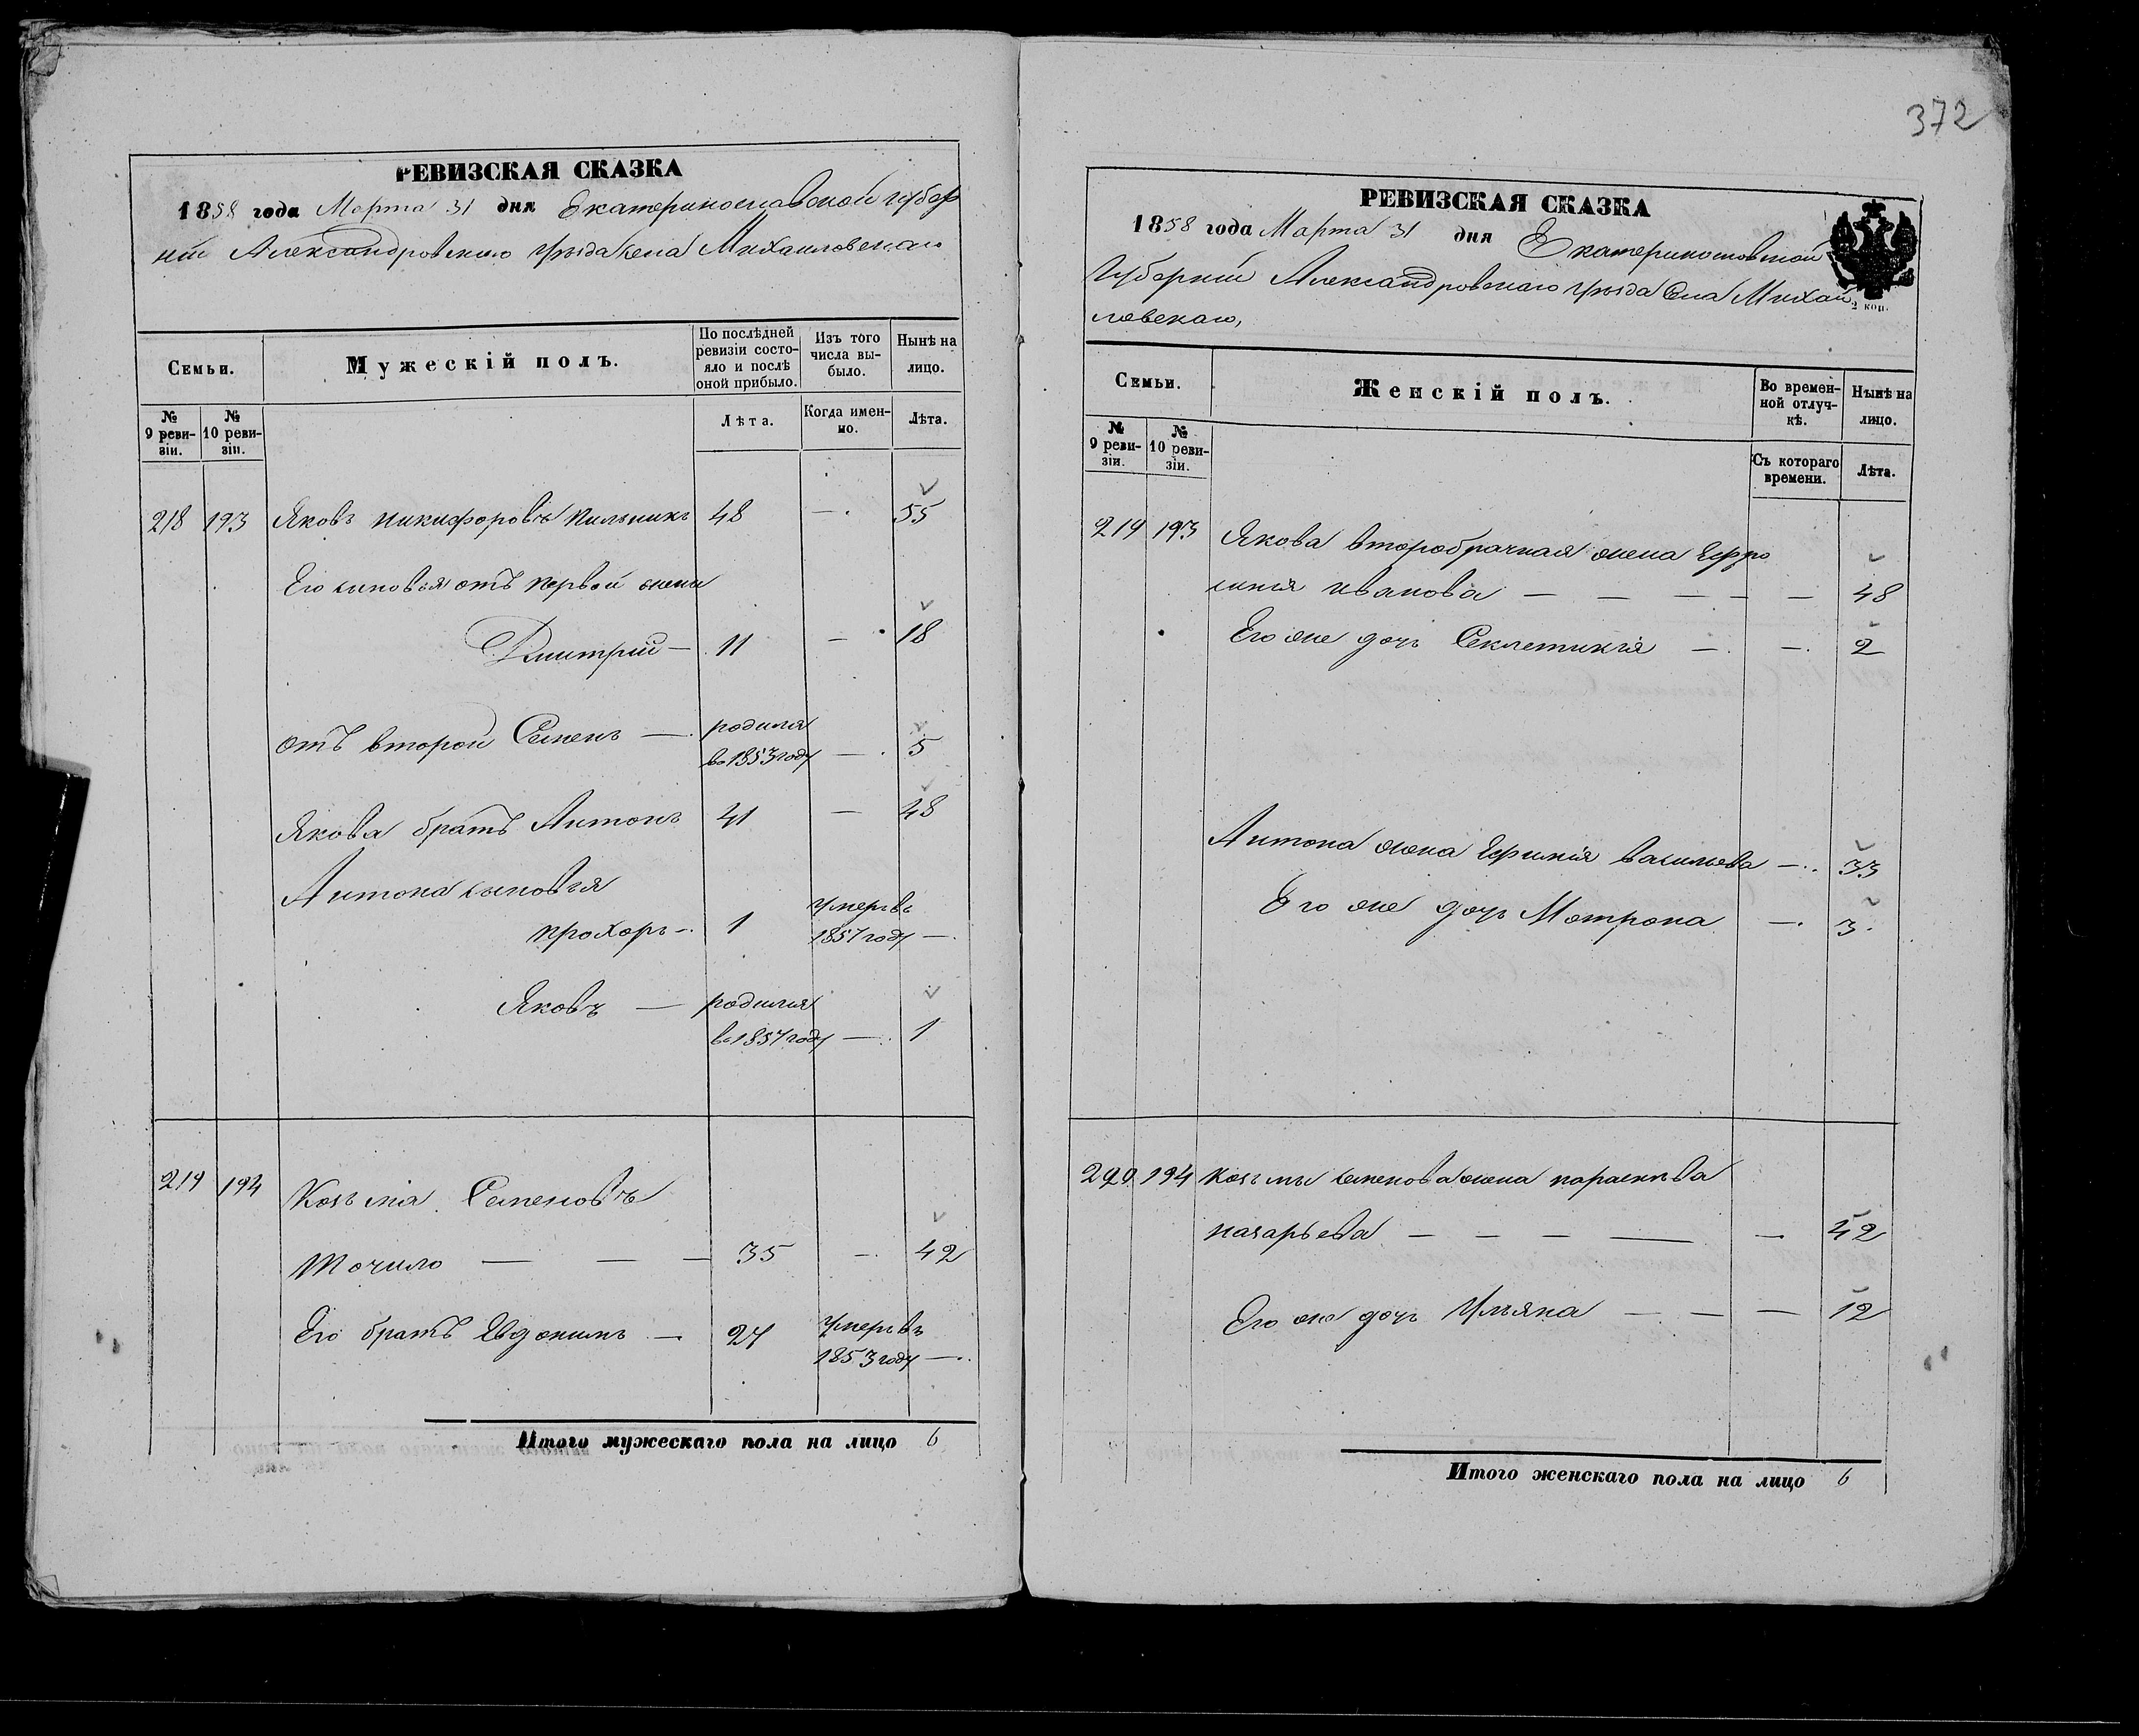 РЕВИЗСКАЯ СКАЗКА
1858 года Марта 31 дня Екатеринославской губер
ніи Александровскаго уѣзда села Михайловскаго
Семьи.
Мужескій полъ.
По послѣдней ревизіи состояло и послѣ оной прибыло.
Изъ того числа выбыло.
Нынѣ на лицо.
№ 9 ревизіи.
№ 10 ревизіи.
Лѣта.
Когда именно.
Лѣта.
218 193 Яковъ Никифоровъ Пильникъ 48 — 55
Его сыновья отъ первой жены
Дмитрій — 11 — 18
отъ второй Семенъ — родился
въ 1853 году — 5
Якова братъ Антонъ 41 — 48
Антона сыновья
Прохоръ — 1 Умеръ въ
1857 году —
Яковъ — родился
въ 1857 году — 1
219 194 Козьма Семеновъ
Точило — — — 35 — 42
Его братъ Евдокимъ — 27 Умеръ въ
1853 году —
Итого мужескаго пола на лицо 6
372
РЕВИЗСКАЯ СКАЗКА
1858 года Марта 31 дня Екатеринославской
Губерніи Александровскаго уѣзда Села Михай
ловскаго,
2 коп.
Семьи.
Женскій полъ.
Во временной отлучкѣ.
Нынѣ на лицо.
№ 9 ревизіи.
№ 10 ревизіи.
Съ котораго времени.
Лѣта.
219 193 Якова второбрачная жена Ефро
синія Иванова — — — — — 48
Его же дочь Секлетикія — — 2
Антона жена Ефимія Васильева — 33
Его же дочь Мотрона — 3
220 194 Козьмы Семенова жена Параскева
Назарьева — — — — — 42
Его же дочь Ульяна — — — 12
Итого женскаго пола на лицо 6